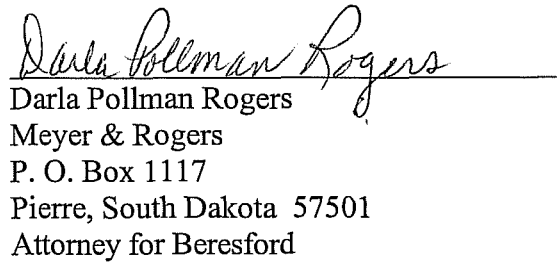 Darla Pollman Rogers
Darla Pollman Rogers
Meyer & Rogers
P. O. Box 1117
Pierre, South Dakota 57501
Attorney for Beresford